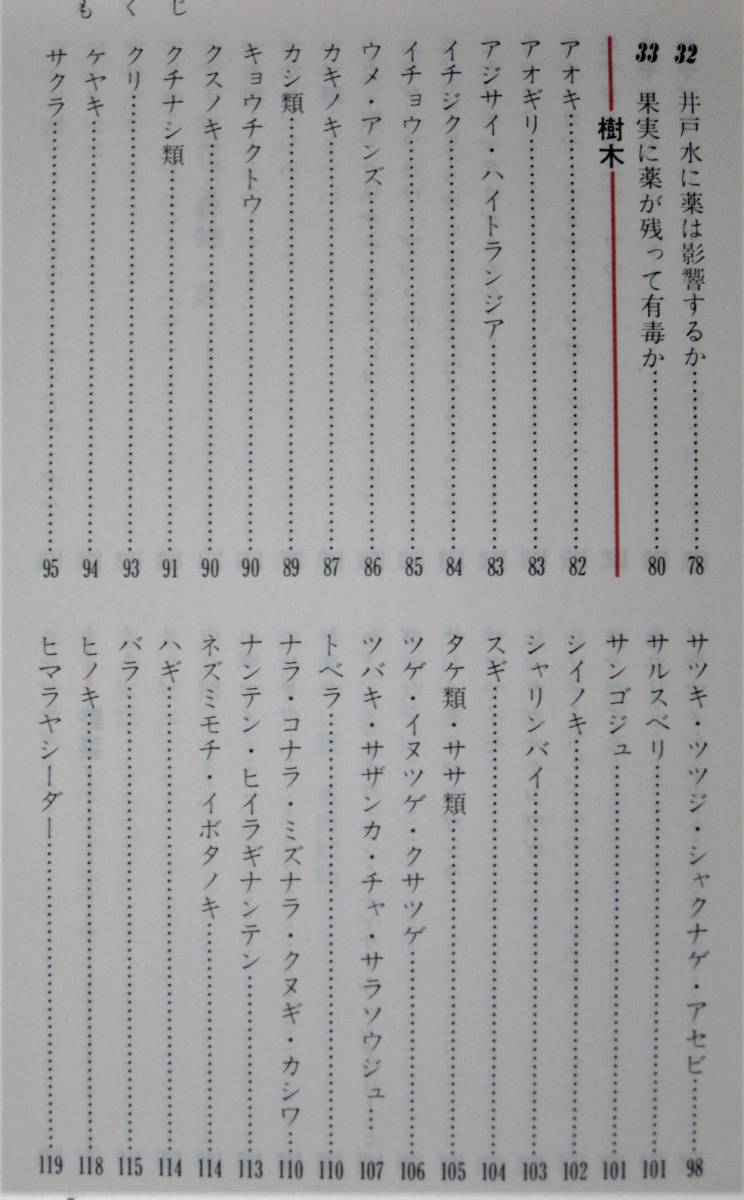 もくじ
32 井戸水に薬は影響するか……78
33 果実に薬が残って有毒か……80
樹木
アオキ……82
アオギリ……83
アジサイ・ハイトランジア……83
イチジク……84
イチョウ……85
ウメ・アンズ……86
カキノキ……87
カシ類……89
キョウチクトウ……90
クスノキ……90
クチナシ類……91
クリ……93
ケヤキ……94
サクラ……95
サツキ・ツツジ・シャクナゲ・アセビ……98
サルスベリ……101
サンゴジュ……101
シイノキ……102
シャリンバイ……103
スギ……104
タケ類・ササ類……105
ツゲ・イヌツゲ・クサツゲ……106
ツバキ・サザンカ・チャ・サラソウジュ……107
トベラ……110
ナラ・コナラ・ミズナラ・クヌギ・カシワ……110
ナンテン・ヒイラギナンテン……113
ネズミモチ・イボタノキ……114
ハギ……114
バラ……115
ヒノキ……118
ヒマラヤシーダー……119